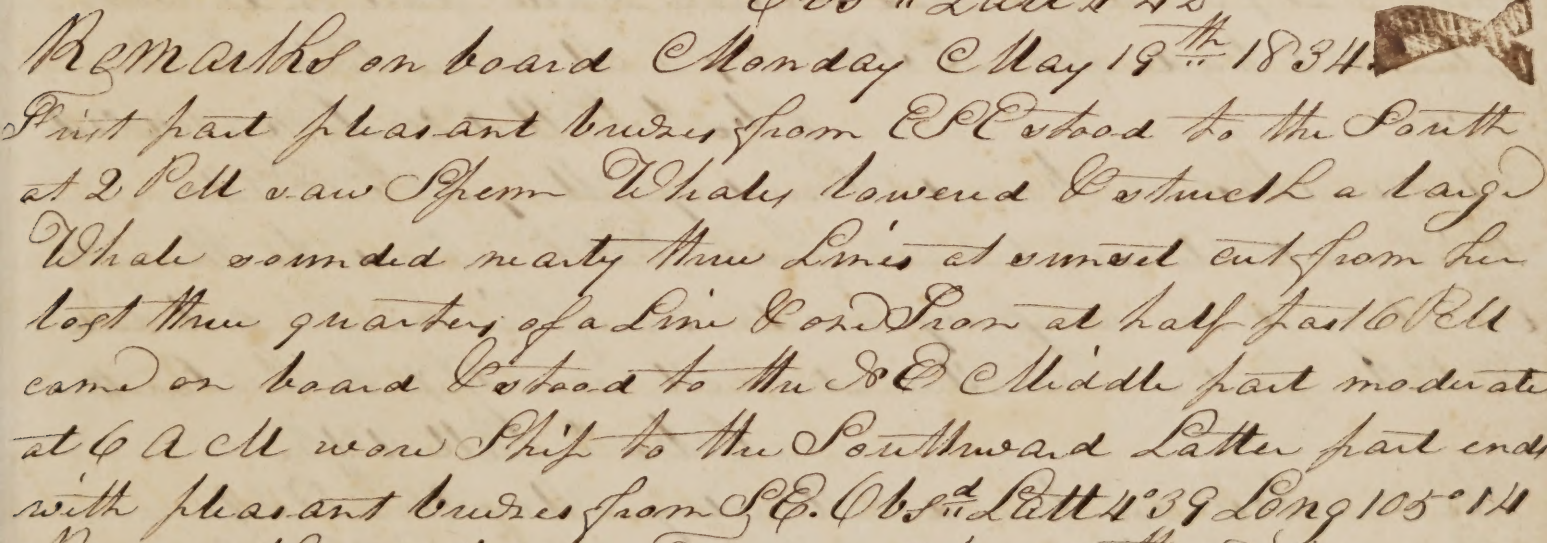 Obsd Latt 4 42
Remarks on board Monday May 19th 1834.
First part pleasant breezes from ESE stood to the South
at 2 PM saw Sperm Whales lowered & struck a large
Whale sounded nearly three Lines at sunset cut from her
lost three quarters of a Line & one Iron at half past 6 PM
came on board & stood to the NE Middle part moderate
at 6 AM wore Ship to the Southward Latter part ends
with pleasant breezes from SE. Obsd Latt 4°39 Long 105°14